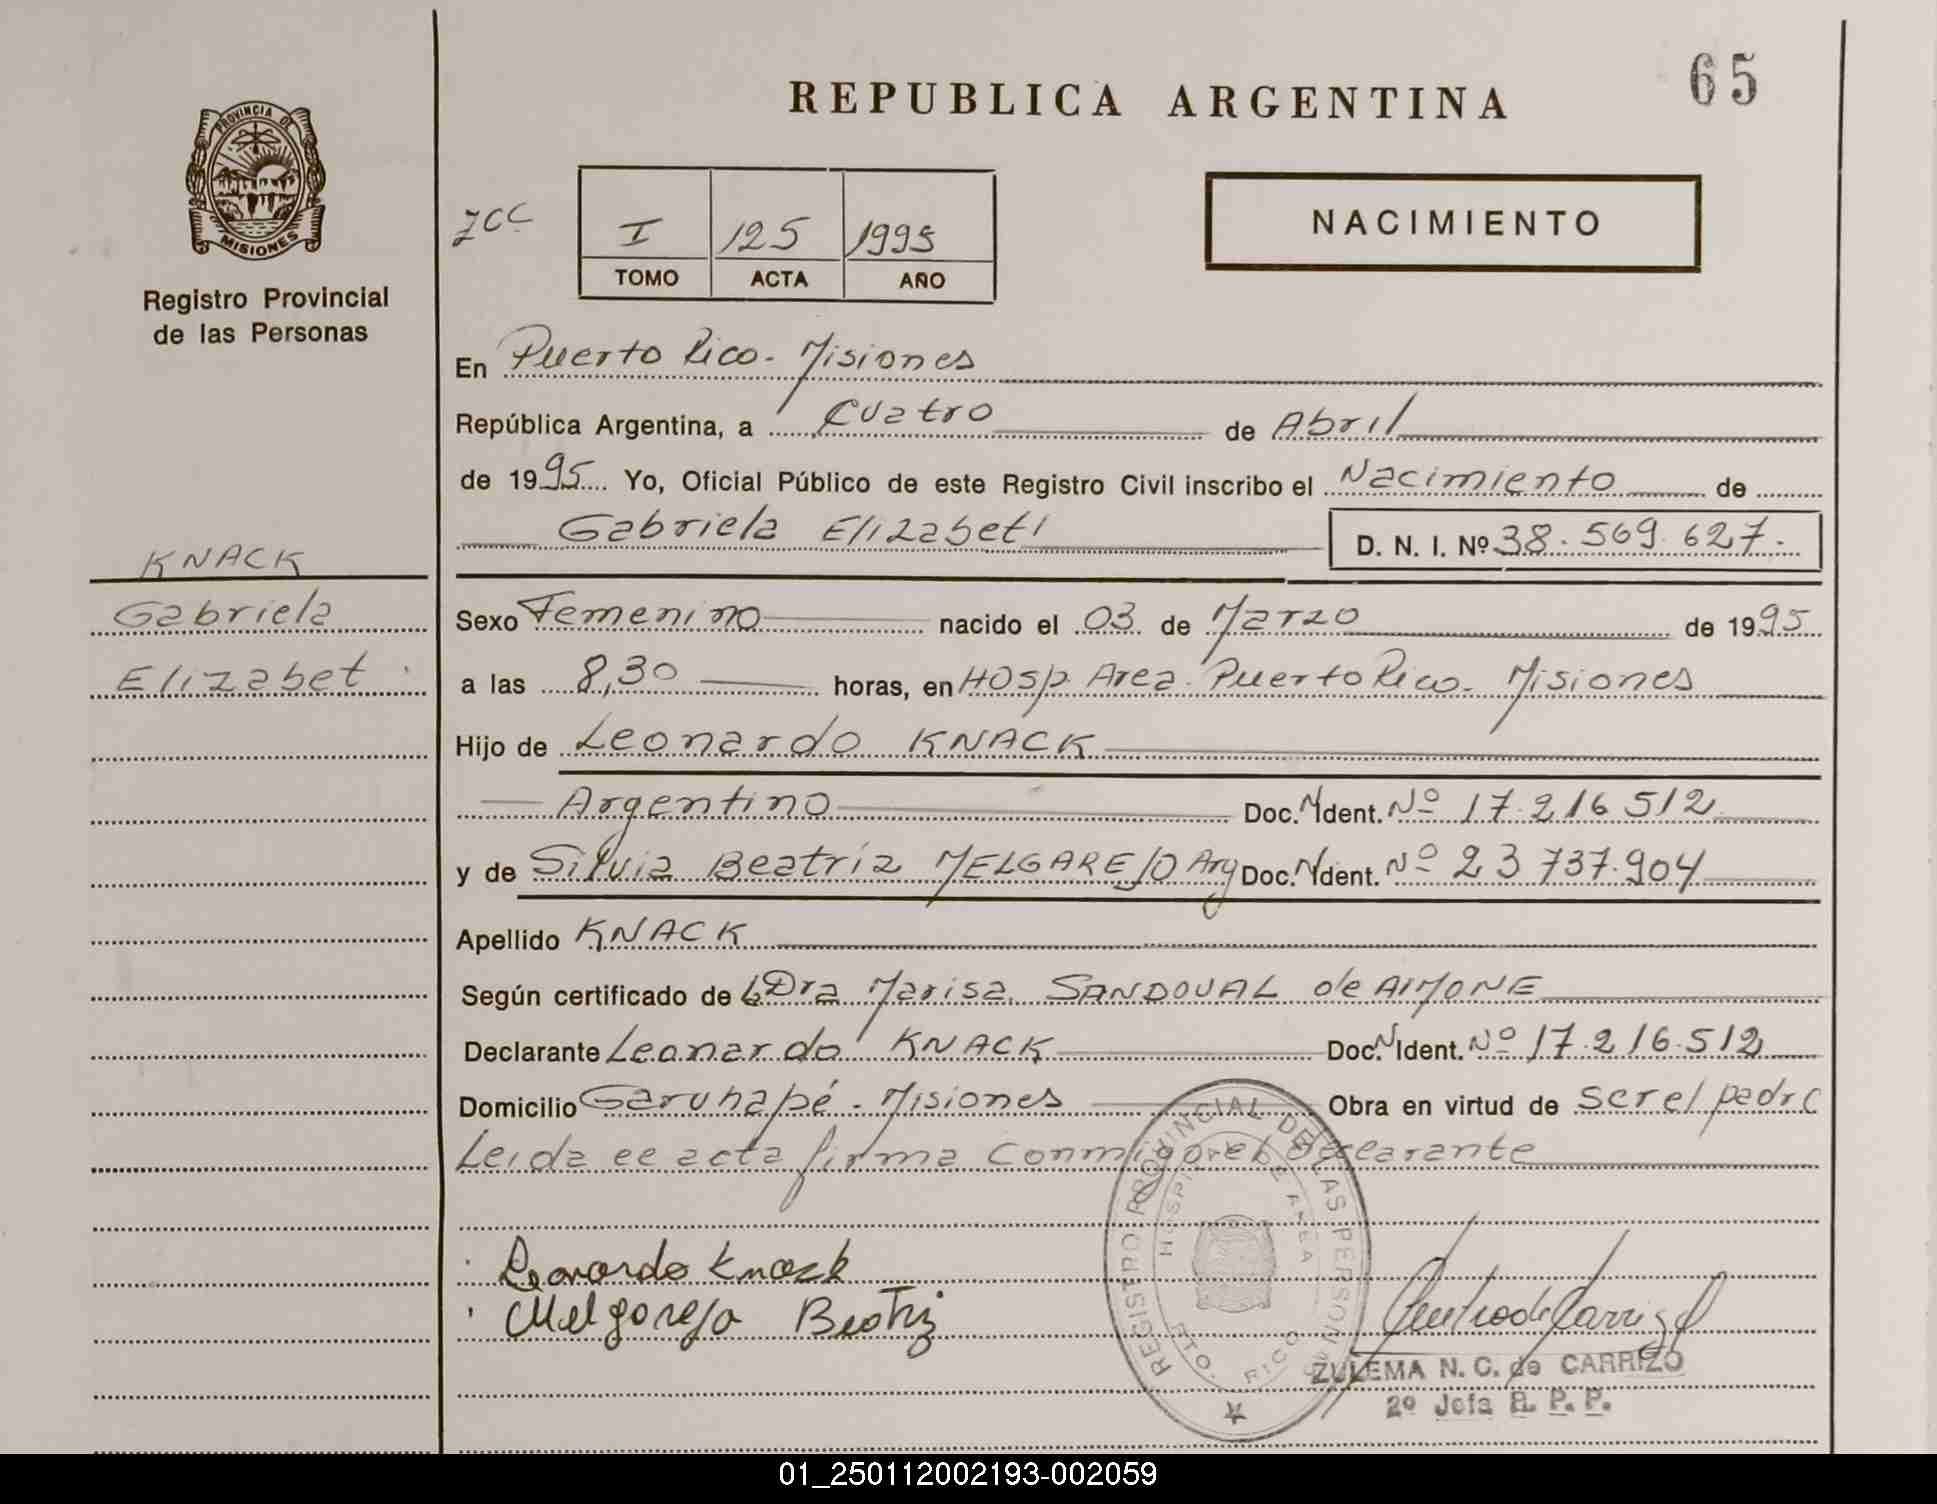 65
REPUBLICA ARGENTINA
PROVINCIA DE
MISIONES
Registro Provincial
de las Personas
NACIMIENTO
I 125 1995
TOMO ACTA AÑO
En Puerto Rico - Misiones
República Argentina, a Cuatro de Abril
de 1995 Yo, Oficial Público de este Registro Civil inscribo el Nacimiento de
Gabriela Elizabet D. N. I. Nº 38.569.627.
KNACK
Gabriela
Elizabet
Sexo Femenino nacido el 03 de Marzo de 1995
a las 8,30 horas, en Hosp. Area Puerto Rico - Misiones
Hijo de Leonardo KNACK
Argentino Doc. N Ident. Nº 17.216.512
y de Silvia Beatríz MELGAREJO Arg Doc. N Ident. Nº 23 737.904
Apellido KNACK
Según certificado de Dra Marisa SANDOVAL de AIMONE
Declarante Leonardo KNACK Doc. N Ident. Nº 17.216.512
Domicilio Garuhapé - Misiones Obra en virtud de ser el padre
Leida ee acta firma conmigo el Declarante
Leonardo Knack
Melgarejo Beatriz
REGISTRO PROVINCIAL DE LAS PERSONAS
HOSPITAL DE AREA
PTO. RICO
ZULEMA N. C. de CARRIZO
2º Jefa R. P. P.
01_250112002193-002059